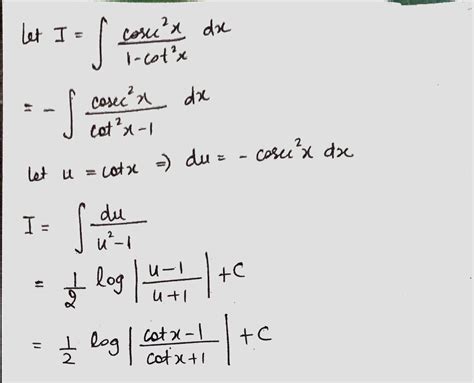 let I = ∫ cosec²x / 1-cot²x dx
= - ∫ cosec²x / cot²x-1 dx
let u = cotx ⇒ du = - cosec²x dx
I = ∫ du / u²-1
= 1/2 log | u-1 / u+1 | +C
= 1/2 log | cotx-1 / cotx+1 | +C